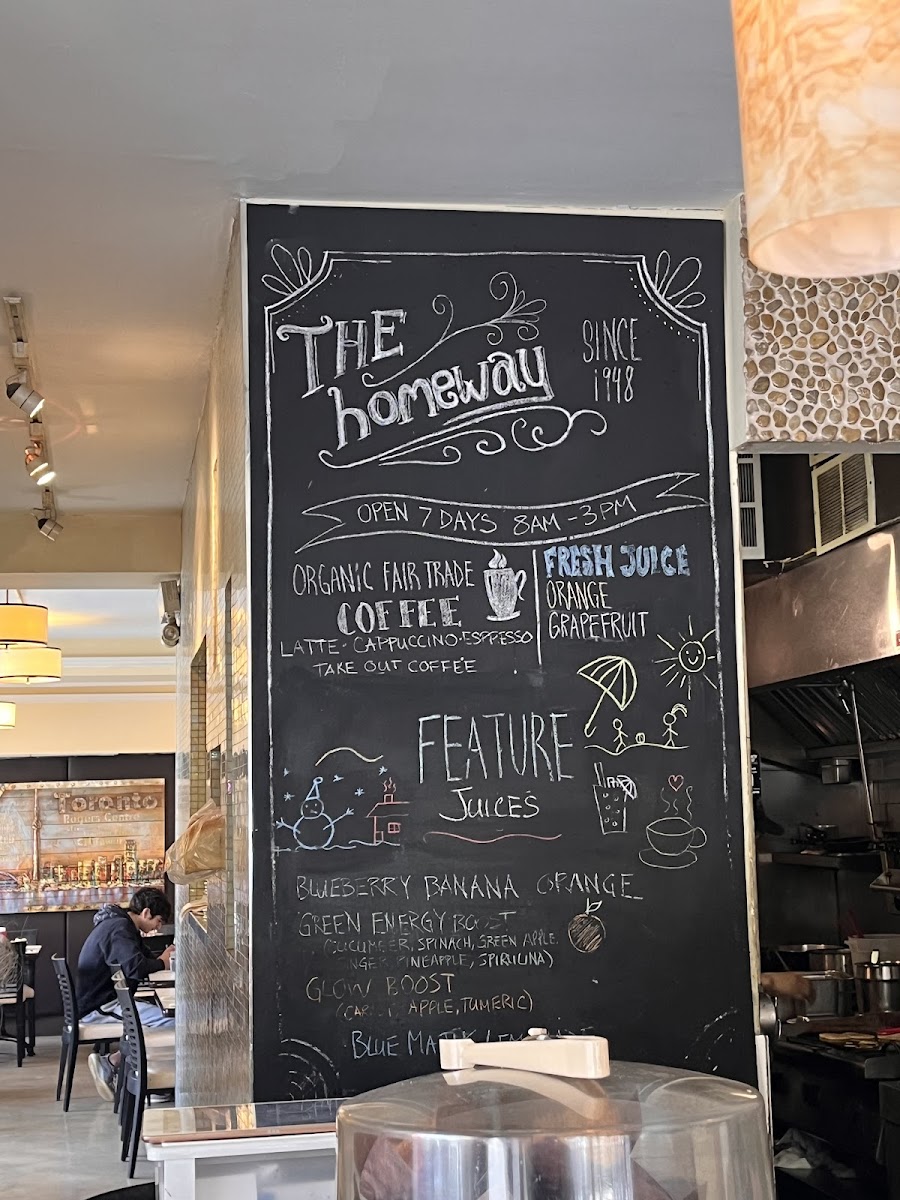 THE
homeway
SINCE
1948
OPEN 7 DAYS 8AM - 3PM
ORGANIC FAIR TRADE
COFFEE
LATTE · CAPPUCCINO · ESPRESSO
TAKE OUT COFFEE
FRESH JUICE
ORANGE
GRAPEFRUIT
FEATURE
JUICES
BLUEBERRY BANANA ORANGE
GREEN ENERGY
CUCUMBER, SPINACH, GREEN APPLE,
PINEAPPLE, SPIRULINA)
GLOW BOOST
APPLE, TUMERIC)
BLUE
Toronto
Rogers Centre